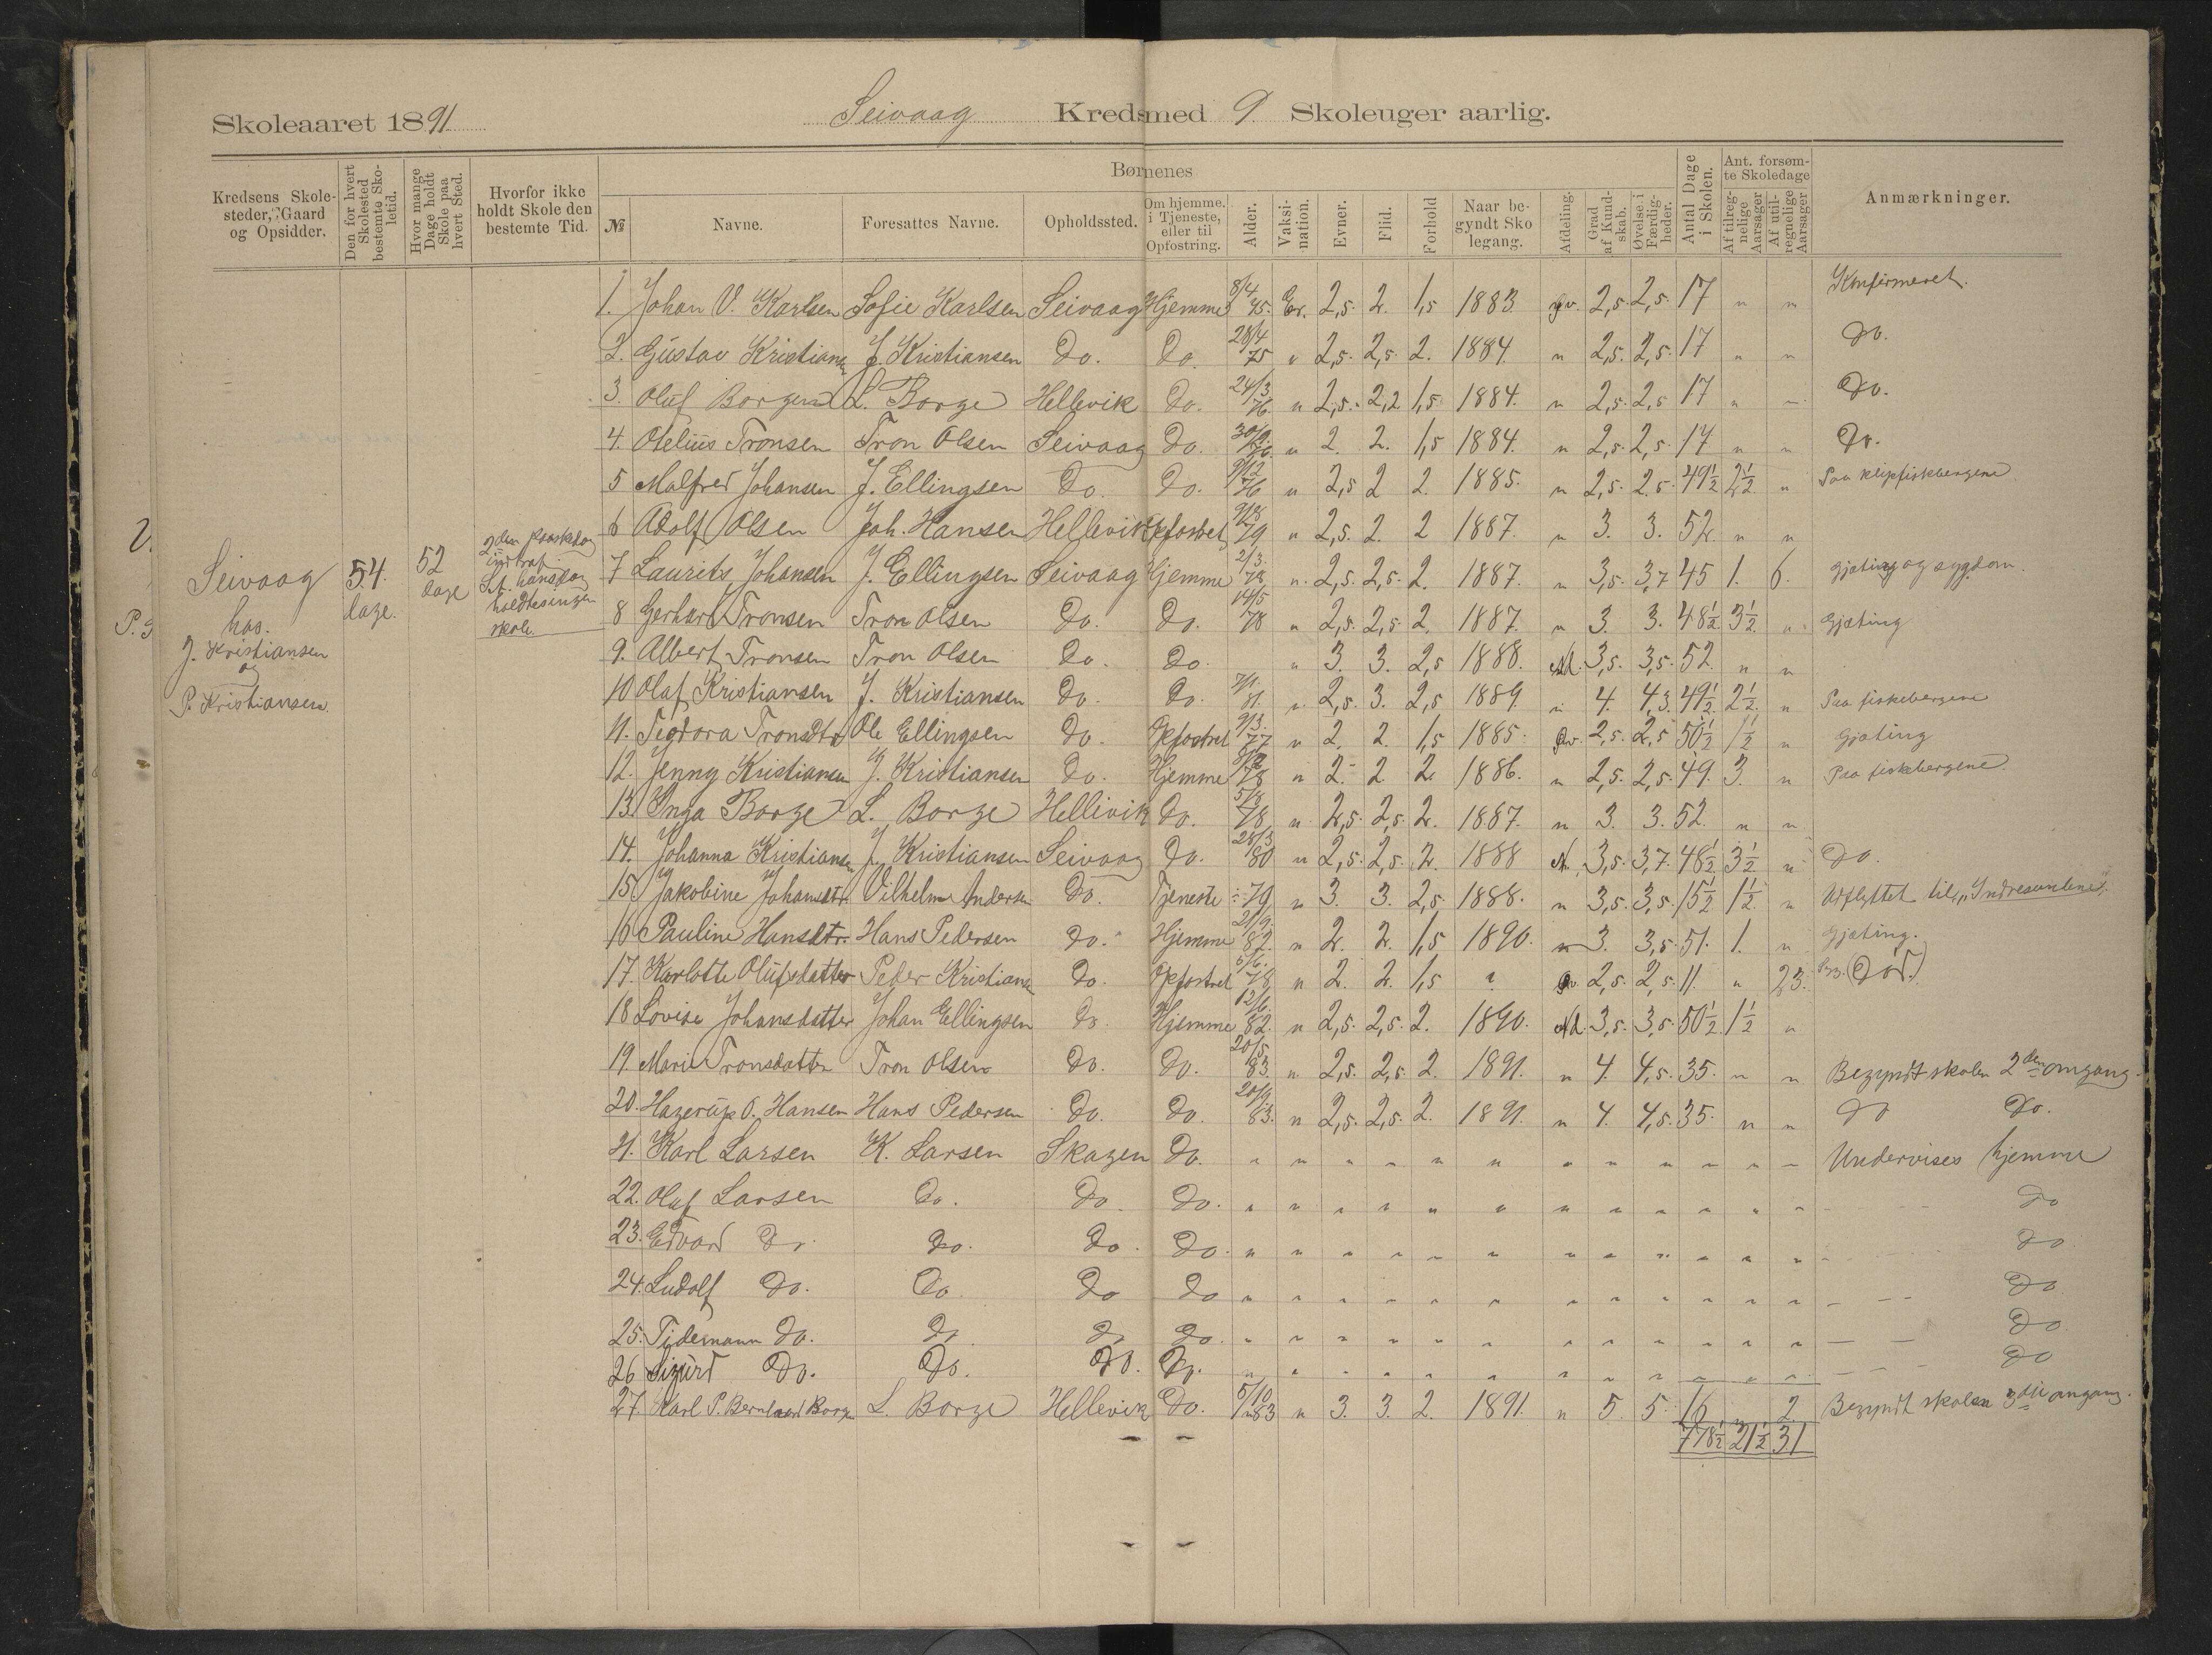 Skoleaaret 1891.
Seivaag Kreds med 9 Skoleuger aarlig.
Kredsens Skolesteder, Gaard og Opsidder.
Den for hvert Skolested bestemte Skoletid.
Hvor mange Dage holdt Skole paa hvert Sted.
Hvorfor ikke holdt Skole den bestemte Tid.
Børnenes
№ Navne. Foresattes Navne. Opholdssted. Om hjemme, i Tjeneste, eller til Opfostring. Alder. Vaksination. Evner. Flid. Forhold Naar begyndt Skolegang. Afdeling. Grad af Kundskab. Øvelse i Færdigheder.
Antal Dage i Skolen.
Ant. forsømte Skoledage
Af tilregnelige Aarsager
Af utilregnelige Aarsager
Anmærkninger.
Seivaag
hos.
J. Kristiansen
og
P. Kristiansen
54.
dage.
52
dage
2den Paaskedag
indtraf
St. hansdag
holdtes ingen
skole.
1. Johan V. Karlsen Sofie Karlsen Seivaag Hjemme 8/4 75. Er. 2,5. 2. 1,5 1883. Øv. 2,5. 2,5. 17 " " Konfirmeret.
2. Gustav Kristiansen J. Kristiansen Do. Do. 28/4 75 " 2,5. 2,5. 2. 1884. " 2,5. 2,5. 17 " " Do.
3. Oluf Borgesen L. Borge Hellevik Do. 24/3 76 " 2,5. 2,2 1,5 1884. " 2,5. 2,5 17 " " Do.
4. Otelius Tronsen Tron Olsen Seivaag Do. 30/9. 76. " 2. 2. 1,5 1884. " 2,5. 2,5. 17 " " Do.
5 Malfred Johansen J. Ellingsen Do. Do. 9/12 76 " 2,5 2 2. 1885. " 2,5. 2.5. 49½ 2½ " Paa klipfiskbergene
6 Adolf Olsen Joh. Hansen Hellevik Opfostret 9/8 79 " 2,5. 2. 2 1887. " 3. 3. 52. " "
7 Laurits Johansen J. Ellingsen Seivaag Hjemme 2/3. 78 " 2,5. 2,5. 2. 1887. " 3,5. 3,7 45 1. 6. Gjæting og sygdom.
8 Gerhard Tronsen Tron Olsen Do. Do. 14/5 78 " 2,5. 2,5. 2. 1887. " 3. 3. 48½ 3½ " Gjæting
9. Albert Tronsen Tron Olsen Do. Do. " 3. 3. 2,5 1888. Nd. 3,5. 3,5. 52. " "
10 Olaf Kristiansen J. Kristiansen Do. Do. 7/1. 81. " 2,5. 3. 2,5 1889. " 4. 4,3. 49½ 2½ " Paa fiskebergene
11. Teodora Tronsdtr Ole Ellingsen Do. Opfostret 9/3. 77 " 2. 2. 1,5 1885. Øv. 2,5. 2,5 50½ 1½ " Gjæting
12. Jenny Kristiansen J. Kristiansen Do. Hjemme 78 " 2. 2 2. 1886. " 2,5. 2,5. 49. 3. " Paa fiskebergene.
13. Inga Borge L. Borge Hellivik Do. 5/8 78 " 2,5. 2,5. 2. 1887. " 3. 3. 52. " "
14. Johanna Kristiansen J. Kristiansen Seivaag Do. 28/3 80 " 2,5. 2,5. 2. 1888 N. 3,5. 3,7. 48½ 3½ " Do.
15. Jakobine Johansdtr. Vilhelm Andersen Do. Tjeneste 79 " 3. 3. 2,5. 1888. " 3,5. 3,5. 15½ 1½ " Udflyttet til "Indresunlene".
16 Pauline Hansdtr. Hans Pedersen Do. Hjemme 21/9. 82. " 2. 2. 1,5 1890. " 3. 3,5. 51. 1. " Gjæting.
17. Karlotte Olufsdatter Peder Kristiansen Do. Opfostret 5/6. 78 " 2. 2. 1,5 ? Øv. 2,5. 2,5. 11. " 23. (Død.)
18 Lovise Johansdatter Johan Ellingsen Do. Hjemme 12/6. 82. " 2,5. 2,5. 2. 1890. Nd. 3,5. 3,5. 50½ 1½ "
19. Marie Tronsdatter Tron Olsen Do. Do. 20/5 83. " 2,5. 2,5. 2. 1891. " 4. 4,5. 35. " " Begyndt skolen 2den omgang.
20. Hagerup O. Hansen Hans Pedersen Do. Do. 20/9. 83. " 2,5. 2,5. 2. 1891. " 4. 4,5. 35. " " Do Do.
21. Karl Larsen K. Larsen Skagen Do. " " " " " " " " " " " " Undervises hjemme
22. Olaf Larsen Do. Do Do. " " " " " " " " " " " " Do
23. Edvard Do. Do. Do. Do. " " " " " " " " " " " " Do
24. Ludolf Do. Do. Do Do " " " " " " " " " " " " Do
25. Tidemann Do. Do Do Do. " " " " " " " " " " " " Do
26 Sigurd Do. Do. Do. Do. " " " " " " " " " " " " Do
27. Karl P. Bernhard Borge L. Borge Hellevik Do. 5/10 83 " 3. 3. 2. 1891. " 5. 5. 16 " 2. Begyndt skolen 3die omgang.
778½ 21½ 31